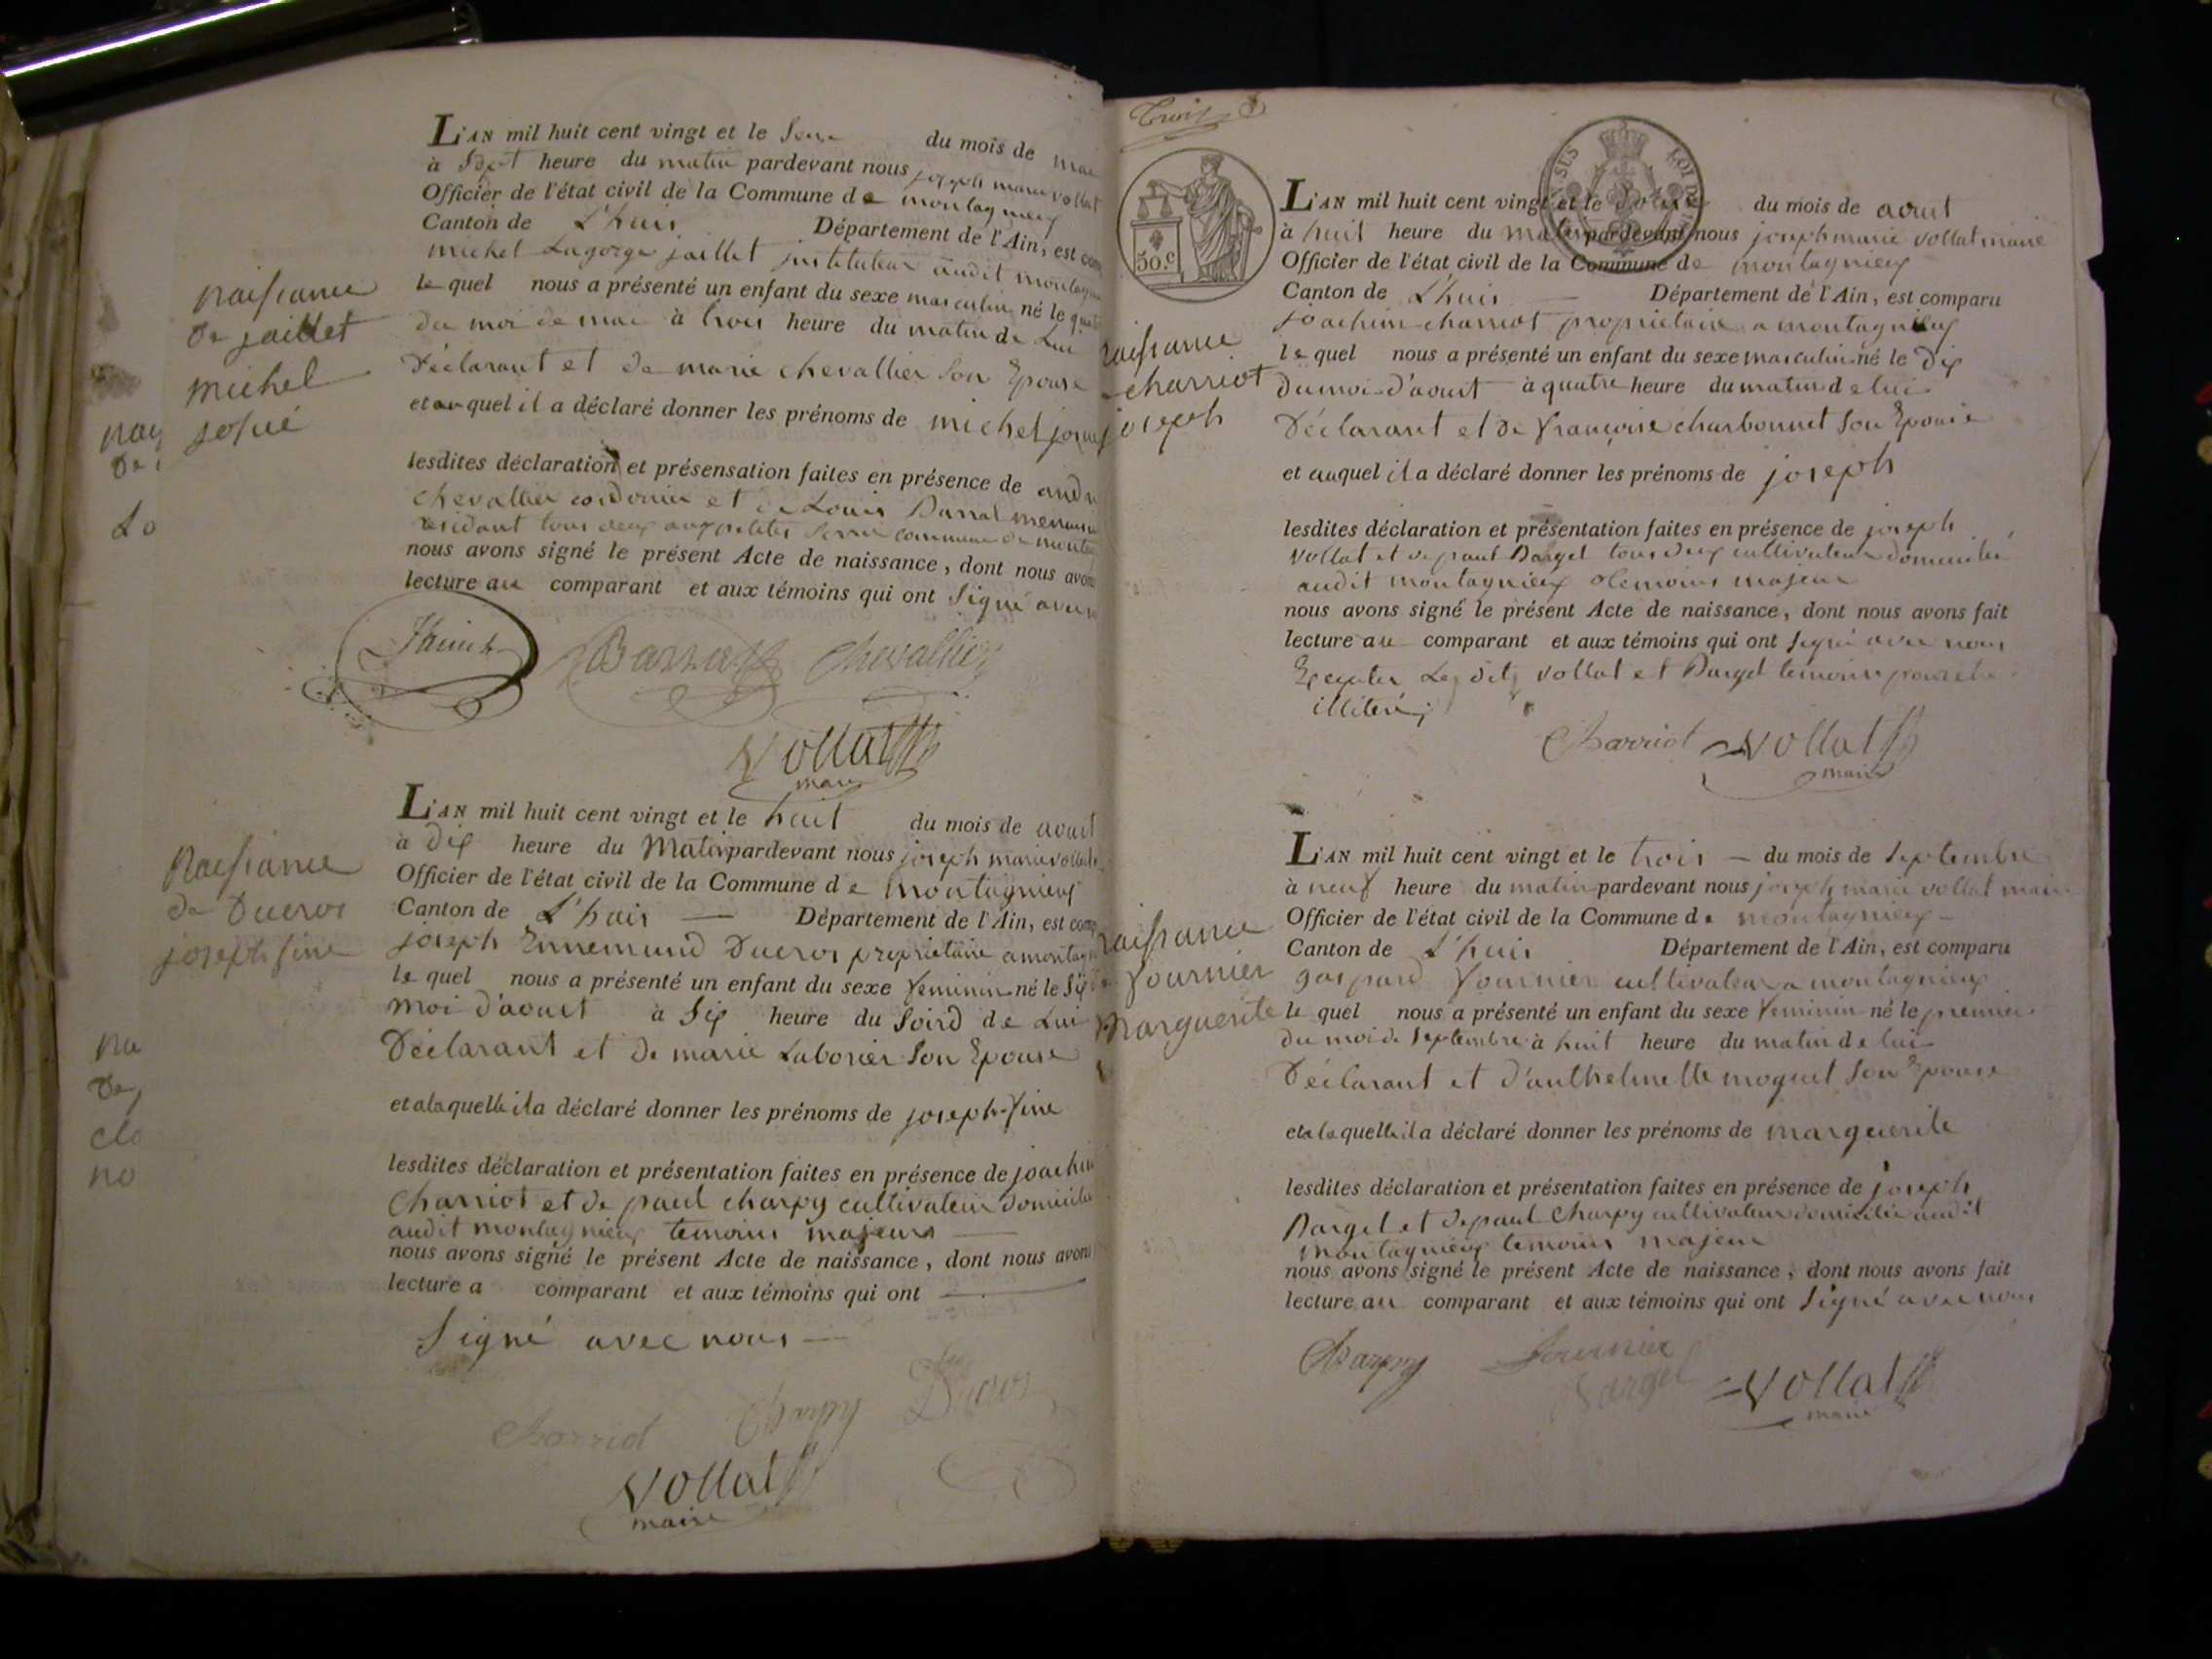 naissance
de jaillet
michel
josué
L'AN mil huit cent vingt et le du mois de mai
à Sept heure du matin pardevant nous joseph marie vollat
Officier de l'état civil de la Commune de montagnieux
Canton de L'huis Département de l'Ain, est com
michel Lagorge jaillet instituteur audit montagni
le quel nous a présenté un enfant du sexe masculin né le
du moi de mai à trois heure du matin de Lui
Déclarant et de marie chevallier Son Epouse
et auquel il a déclaré donner les prénoms de michel josué
lesdites déclaration et présensation faites en présence de
chevallier cordonier et de Louis
résidant tous deux commune de
nous avons signé le présent Acte de naissance, dont nous avons
lecture au comparant et aux témoins qui ont Signé avec
Chevallier
Vollat
maire
nay
Lo
Naissance
de Ducros
joseph fine
na
De
clo
no
L'AN mil huit cent vingt et le huit du mois de aout
à dix heure du Matin pardevant nous joseph marie vollat
Officier de l'état civil de la Commune de montagnieux
Canton de L'huis — Département de l'Ain, est comp
joseph Ennemund Ducros propriétaire a montag
le quel nous a présenté un enfant du sexe feminin né le Six
moi d'aouct à Six heure du Soird de Lui
Déclarant et de marie Laborier Son Epouse
et a laquelle il a déclaré donner les prénoms de joseph-fine
lesdites déclaration et présentation faites en présence de joachim
Charriot et de paul charpy cultivateur domicilié
audit montagnieux temoins majeurs —
nous avons signé le présent Acte de naissance, dont nous avons
lecture a comparant et aux témoins qui ont —
Signé avec nous —
Charriot Charpy Ducros
Vollat
maire
Trois
50.c
naissance
charriot
joseph
L'AN mil huit cent vingt et le du mois de aout
à huit heure du matin pardevant nous joseph marie vollat maire
Officier de l'état civil de la Commune de montagnieux
Canton de L'huis — Département de l'Ain, est comparu
joachim charriot propriétaire a montagnieux
le quel nous a présenté un enfant du sexe masculin né le Dix
du moi d'aouct à quatre heure du matin de lui
Déclarant et de françoise charbonnet Son Epouse
et auquel il a déclaré donner les prénoms de joseph
lesdites déclaration et présentation faites en présence de joseph
vollat et de paul Dargel tous deux cultivateur domicilié
audit montagnieux temoins majeur
nous avons signé le présent Acte de naissance, dont nous avons fait
lecture au comparant et aux témoins qui ont Signé avec nous
Excepter Les dits vollat et Dargel temoins pour etre
illiteré
Charriot Vollat
maire
naissance
fournier
marguerite
L'AN mil huit cent vingt et le trois — du mois de Septembre
à neuf heure du matin pardevant nous joseph marie vollat maire
Officier de l'état civil de la Commune de montagnieux —
Canton de L'huis Département de l'Ain, est comparu
gaspard fournier cultivateur a montagnieux
le quel nous a présenté un enfant du sexe feminin né le premier
du moi de Septembre à huit heure du matin de lui
Déclarant et d'anthelmette moquet Son Epouse
et a laquelle il a déclaré donner les prénoms de marguerite
lesdites déclaration et présentation faites en présence de joseph
Dargel et de paul Charpy cultivateur domicilié audit
montagnieux temoins majeur
nous avons signé le présent Acte de naissance, dont nous avons fait
lecture au comparant et aux témoins qui ont Signé avec nous
Charpy fournier
Dargel Vollat
maire